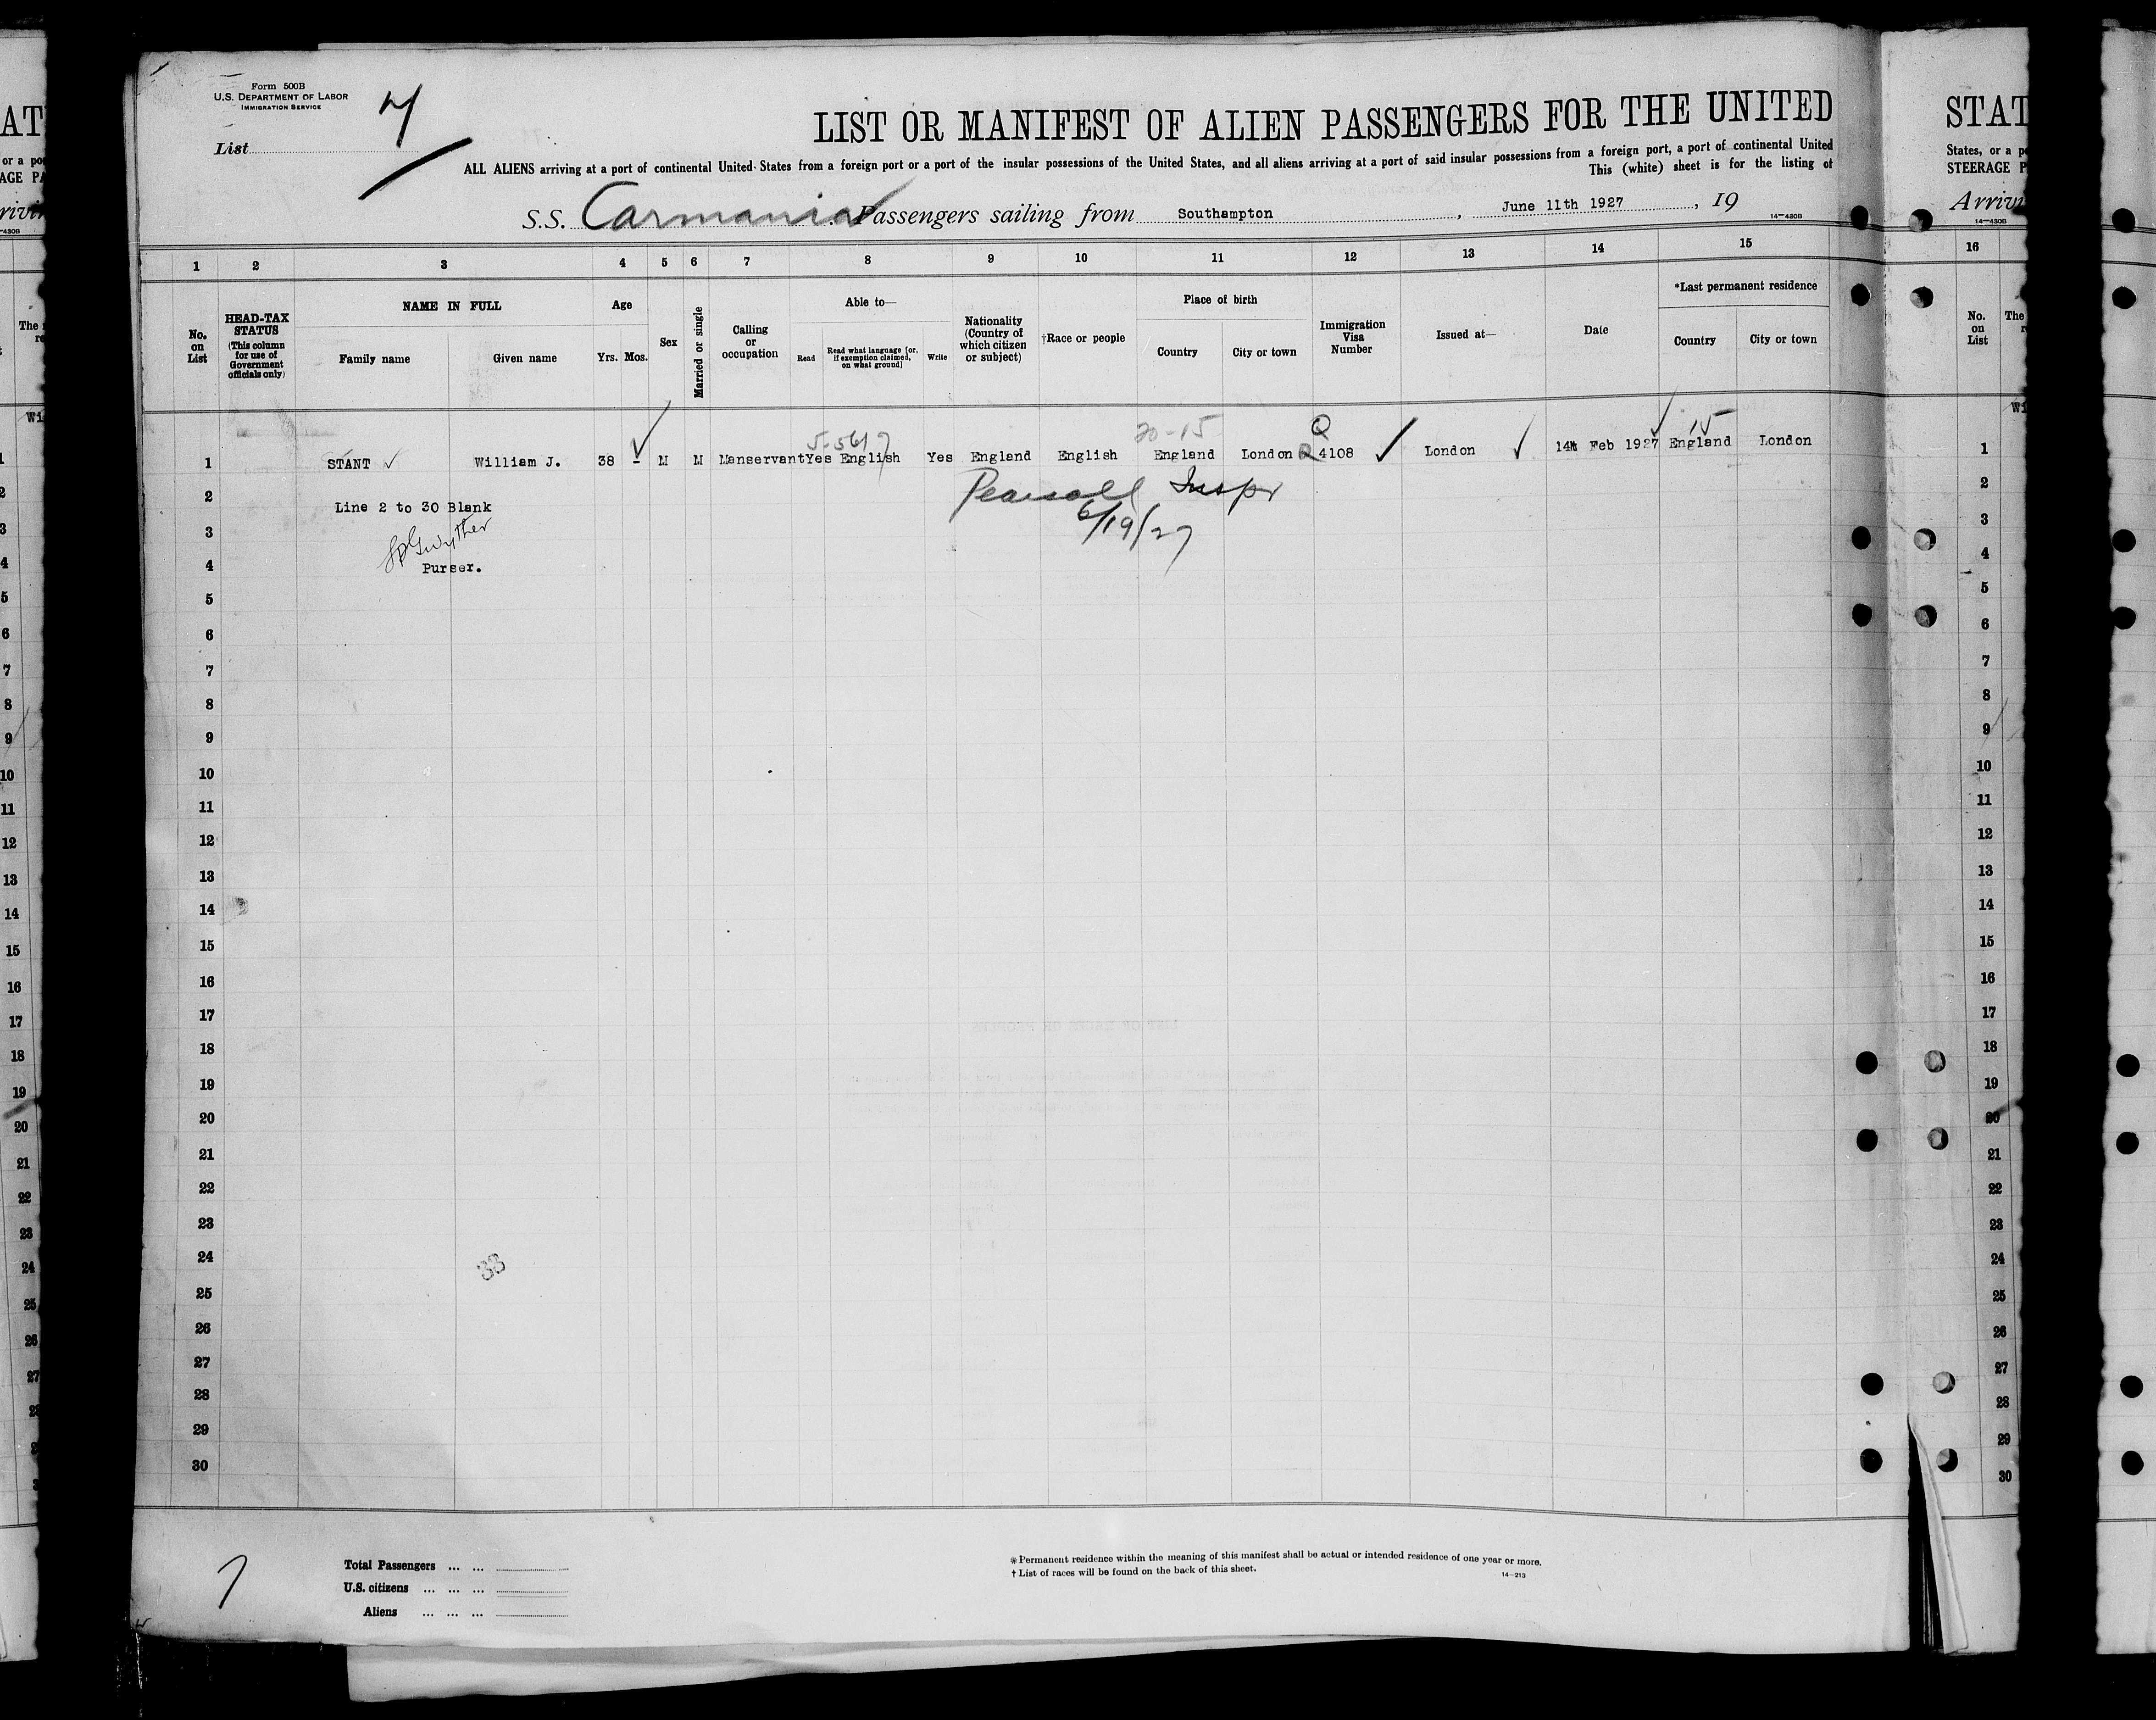 Form 500B
U.S. DEPARTMENT OF LABOR
IMMIGRATION SERVICE
List
LIST OR MANIFEST OF ALIEN PASSENGERS FOR THE UNITED
ALL ALIENS arriving at a port of continental United States from a foreign port or a port of the insular possessions of the United States, and all aliens arriving at a port of said insular possessions from a foreign port, a port of continental United
This (white) sheet is for the listing of
S.S. Carmania Passengers sailing from Southampton, June 11th 1927, 19
14—430B
1 2 3 4 5 6 7 8 9 10 11 12 13 14 15
No. on List
HEAD-TAX STATUS (This column for use of Government officials only)
NAME IN FULL
Family name Given name
Age
Yrs. Mos.
Sex
Married or single
Calling or occupation
Able to—
Read
Read what language [or, if exemption claimed, on what ground]
Write
Nationality (Country of which citizen or subject)
†Race or people
Place of birth
Country City or town
Immigration Visa Number
Issued at—
Date
*Last permanent residence
Country City or town
5-5617 20-15 Q 15
1 STANT William J. 38 - M M Manservant Yes English Yes England English England London 4108 London 14th Feb 1927 England London
Pearsall Inspr
6/19/27
2
Line 2 to 30 Blank
3
Gwyther
4
Purser.
5
6
7
8
9
10
11
12
13
14
15
16
17
18
19
20
21
22
23
24
33
25
26
27
28
29
30
Total Passengers ... ...
U.S. citizens ... ... ...
Aliens ... ... ...
* Permanent residence within the meaning of this manifest shall be actual or intended residence of one year or more.
† List of races will be found on the back of this sheet.
14—213
STAT
States, or a p
STEERAGE P
Arrivi
14—430B
16
No. on List
The
Wi
1
2
3
4
5
6
7
8
9
10
11
12
13
14
15
16
17
18
19
20
21
22
23
24
25
26
27
28
29
30